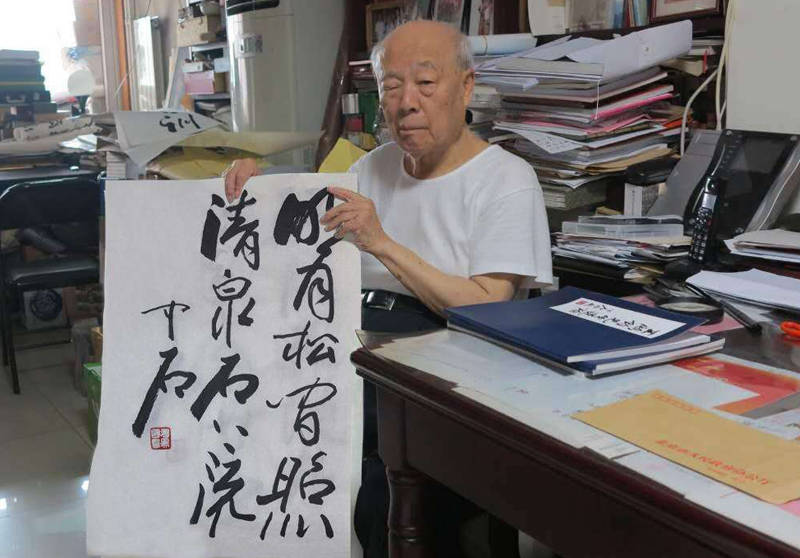 明月松间照
清泉石上流
中石